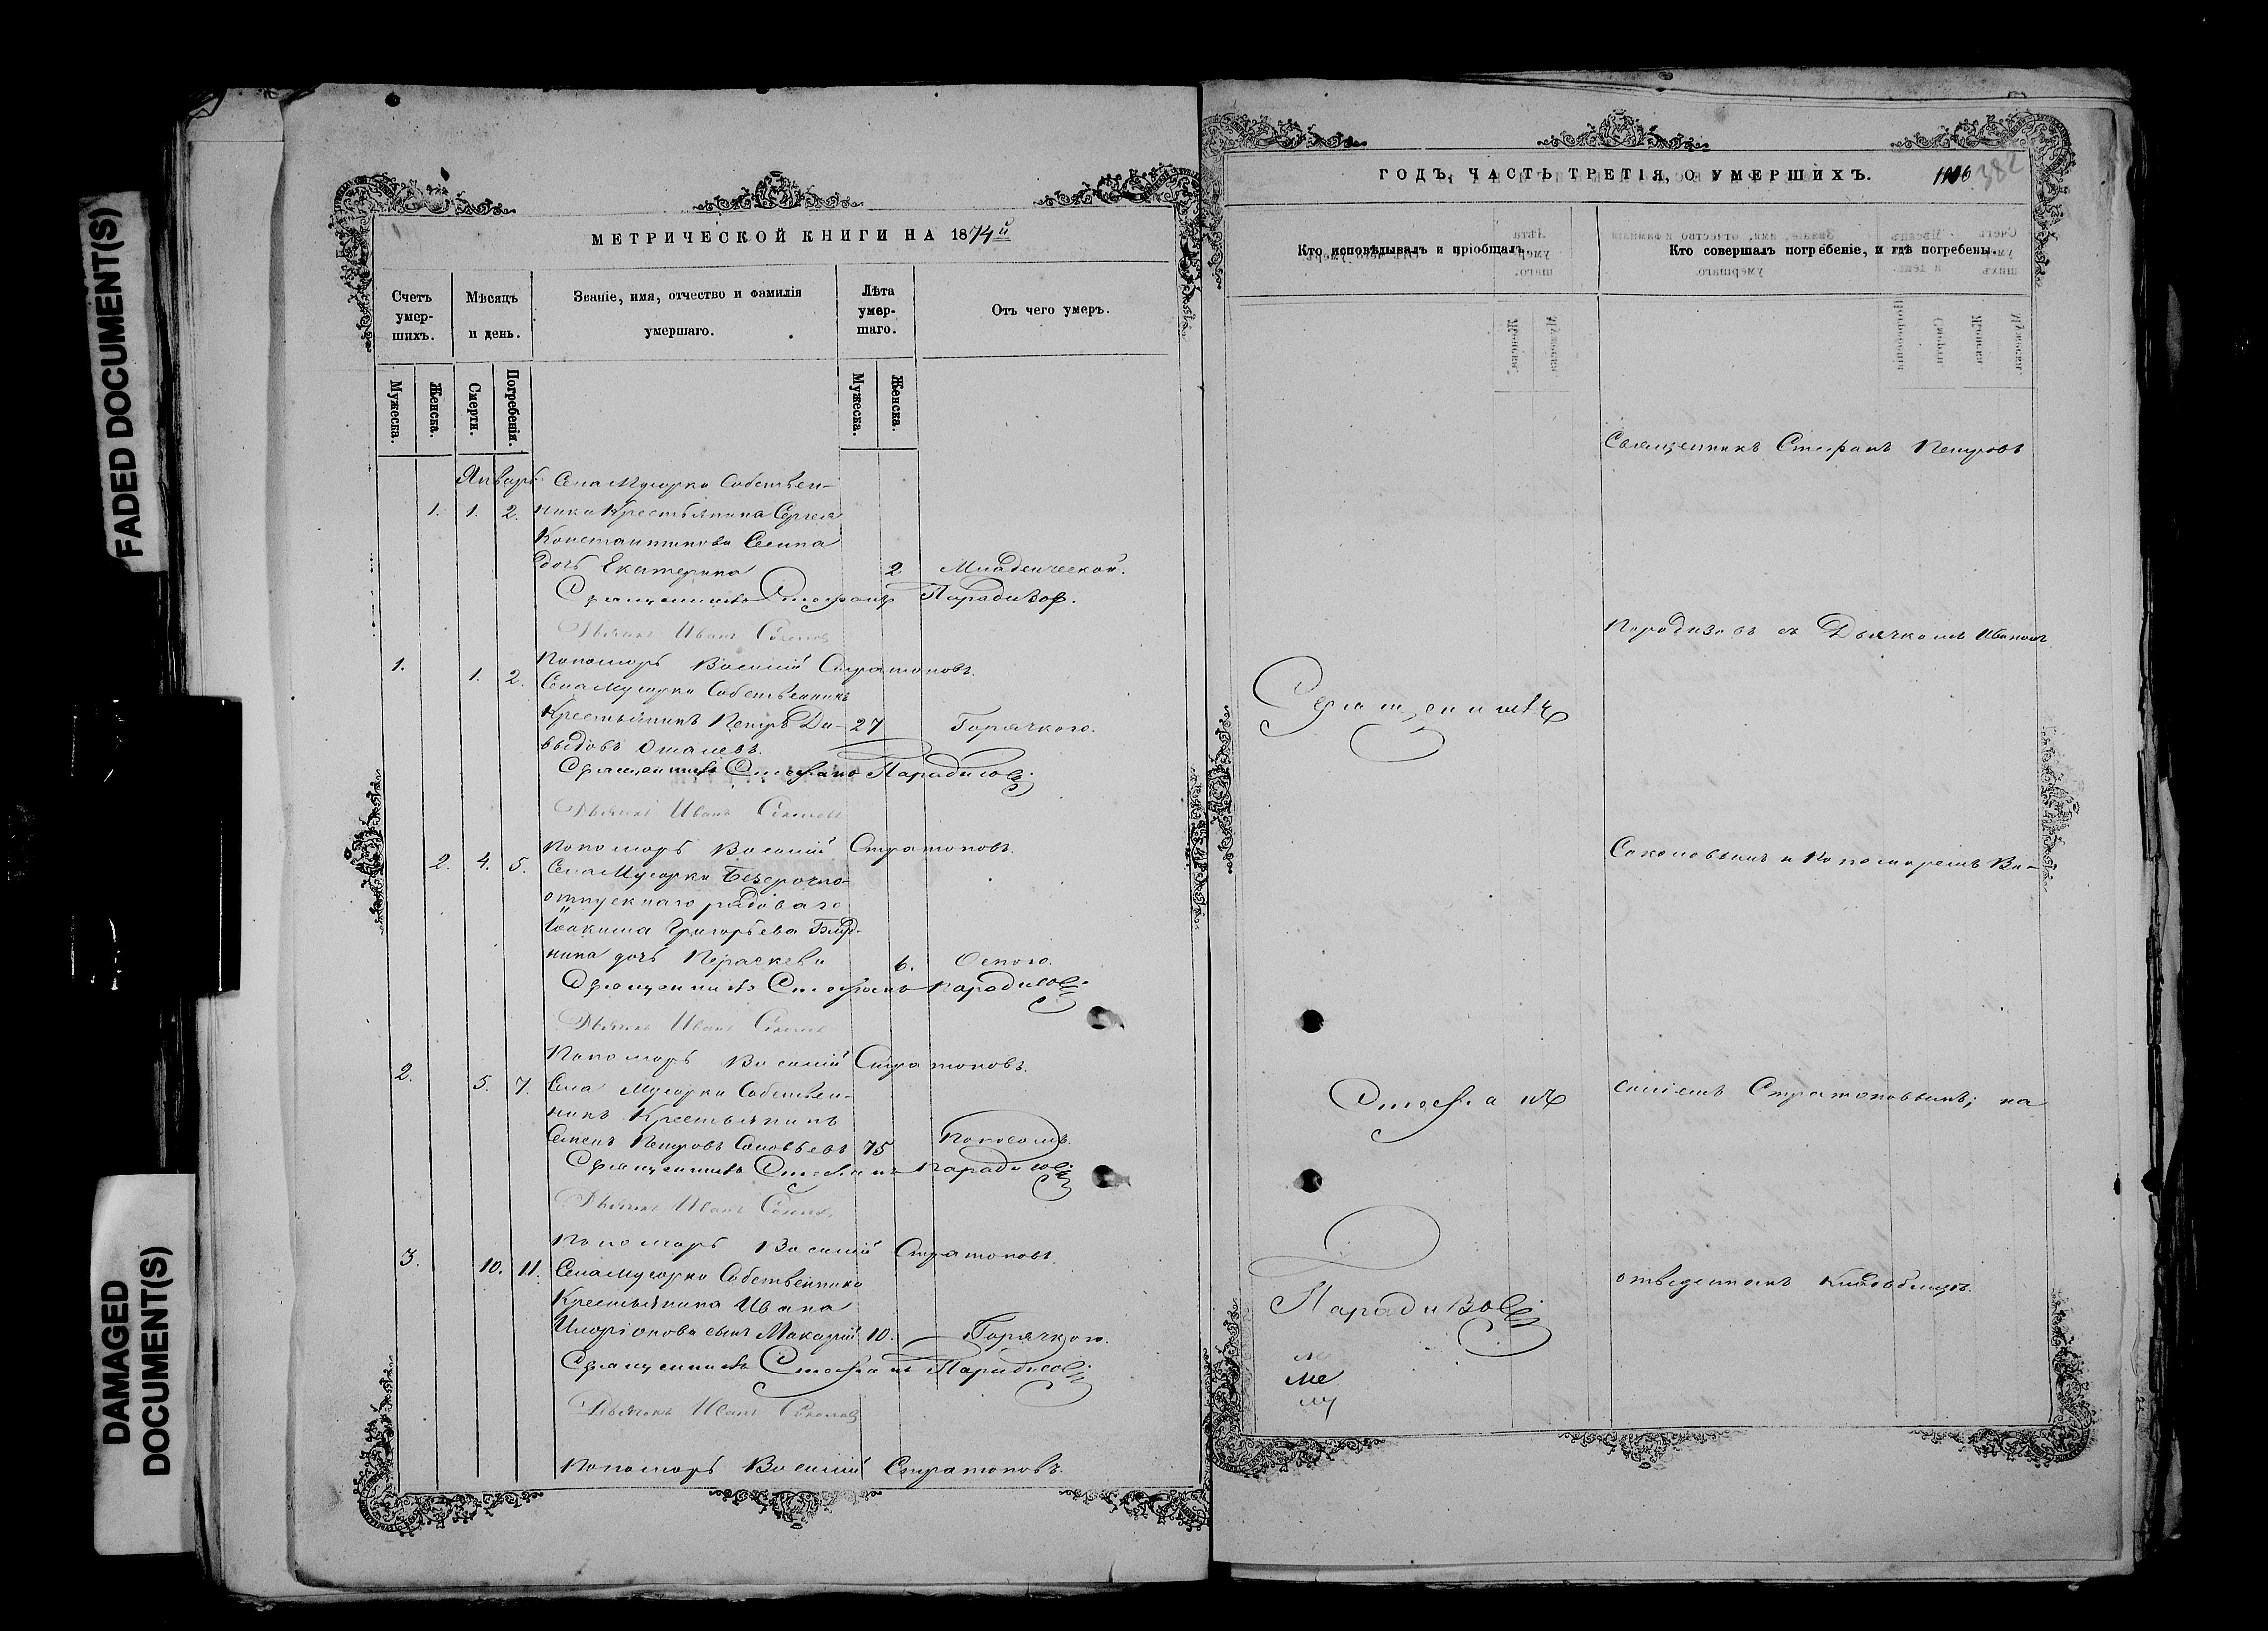 FADED DOCUMENT(S)
DAMAGED
DOCUMENT(S)
МЕТРИЧЕСКОЙ КНИГИ НА 1874й
Счетъ
умер-
шихъ.
Мѣсяцъ
и день.
Званіе, имя, отчество и фамилія
умершаго.
Лѣта
умер-
шаго.
Отъ чего умеръ.
Мужеска.
Женска.
Смерти.
Погребенія.
Мужеска.
Женска.
Январь Села Мусорки Собствен-
1. 1. 2. ника Крестьянина Сергея
Константинова
дочь Екатерина 2 Младенческой.
Священникъ Стефанъ Парадизов.
Дьячекъ Иванъ Соколов
1. 1. 2. Пономарь Василій Стратоновъ.
Села Мусорки Собственникъ
Крестьянинъ Петръ Да- 27 Горячкою.
выдовъ
Священникъ Стефанъ Парадизов
Дьячекъ Иванъ Соколовъ
Пономарь Василій Стратоновъ.
2. 4. 5. Села Мусорки Безсрочно-
отпускнаго рядоваго
Іоакима Григорьева
нина дочь Параскева 6. Оспою.
Священникъ Стефанъ Парадизов
Дьячекъ Иванъ Соколов
Пономарь Василій Стратоновъ.
2. 5. 7. Села Мусорки Собствен-
никъ Крестьянинъ
Семенъ Петровъ Соловьевъ 75 Поносомъ.
Священникъ Стефанъ Парадизов
Дьячекъ Иванъ Соколов
Пономарь Василій Стратоновъ.
3. 10. 11. Села Мусорки Собственника
Крестьянина Ивана
Иларіонова сынъ Макарій 10. Горячкою.
Священникъ Стефанъ Парадизов
Дьячекъ Иванъ Соколов
Пономарь Василій Стратоновъ.
ГОДЪ, ЧАСТЬ ТРЕТІЯ, О УМЕРШИХЪ.
382
Кто исповѣдывалъ и пріобщалъ.
Кто совершалъ погребеніе, и гдѣ погребены.
Священникъ Стефанъ Петровъ
Парадизовъ съ Дьячкомъ Иваномъ
Священникъ
Соколовымъ и Пономаремъ Ва-
Стефанъ
силіемъ Стратоновымъ; на
Парадизов
отведенномъ кладбищѣ.